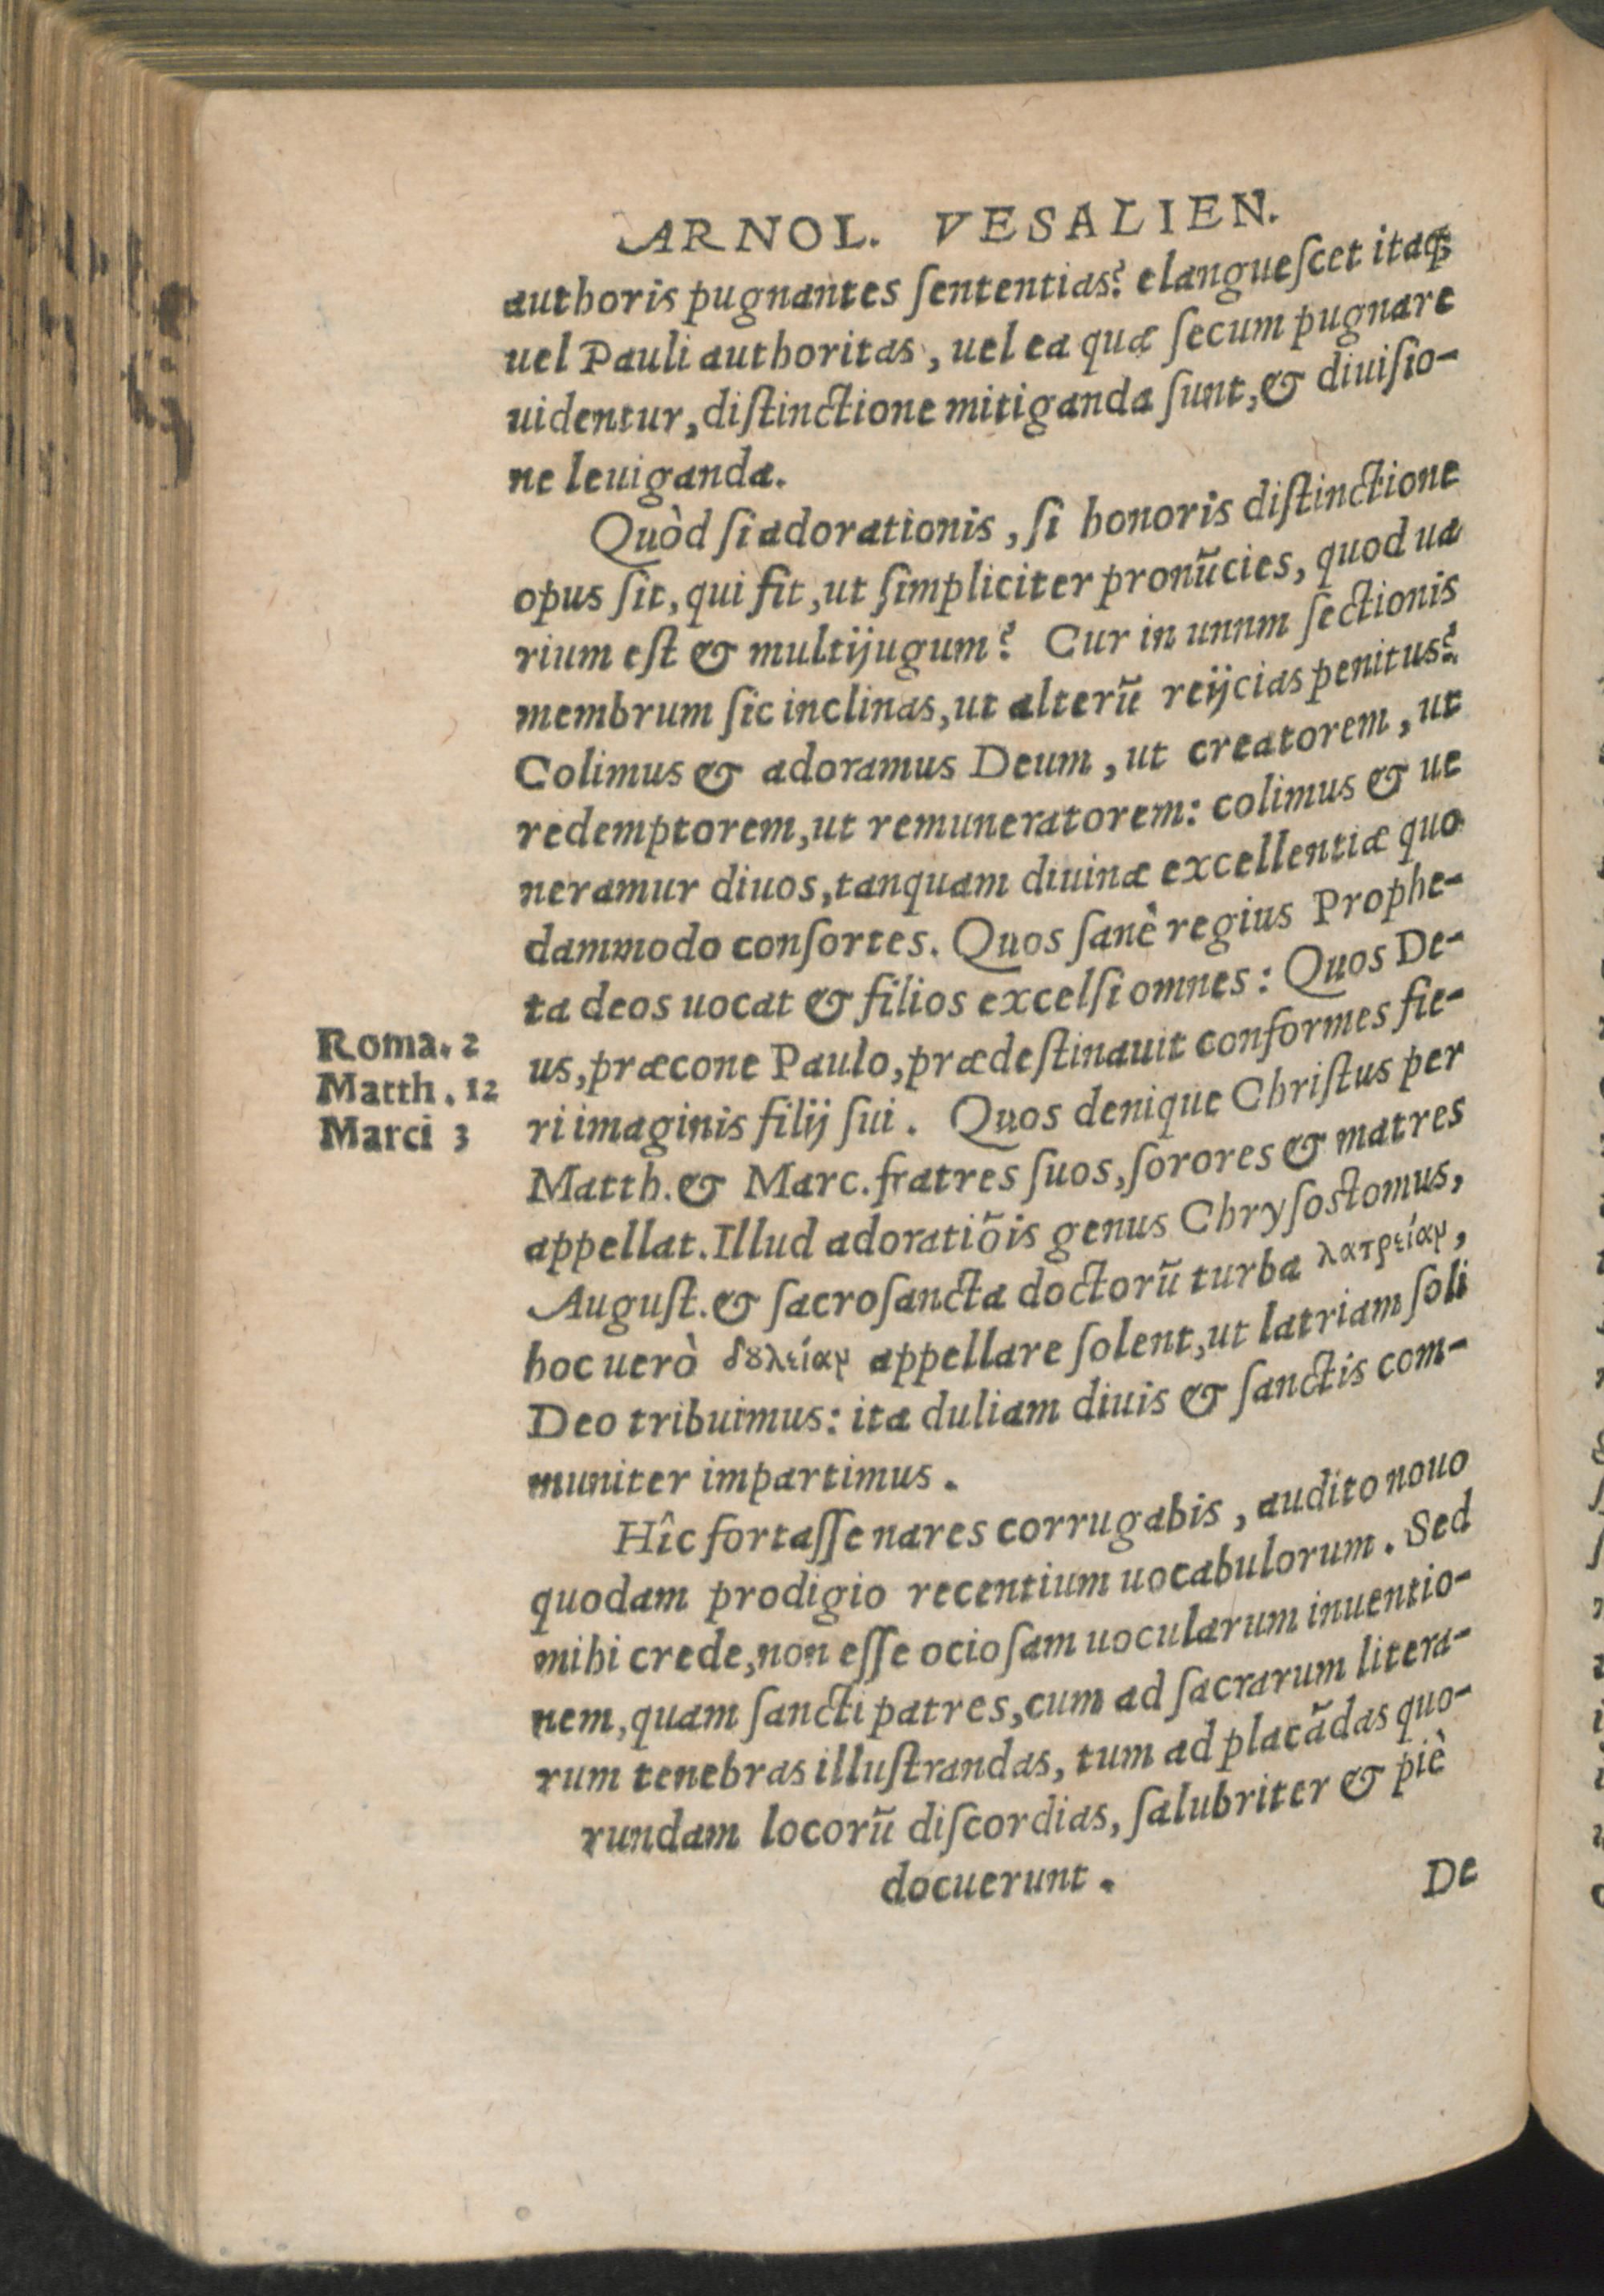 ARNOL. VESALIEN.
authoris pugnantes ſententias? elangueſcet itaqꝫ
uel Pauli authoritas, uel ea quæ ſecum pugnare
uidentur, diſtinctione mitiganda ſunt, & diuiſio-
ne leuiganda.
Quòd ſi adorationis, ſi honoris diſtinctione
opus ſit, qui fit, ut ſimpliciter pronũcies, quod ua
rium eſt & multijugum? Cur in unnm ſectionis
membrum ſic inclinas, ut alterũ reijcias penitus?
Colimus & adoramus Deum, ut creatorem, ut
redemptorem, ut remuneratorem: colimus & ue
neramur diuos, tanquam diuinæ excellentiæ quo
dammodo conſortes. Quos ſanè regius Prophe-
ta deos uocat & filios excelſi omnes: Quos De-
Roma. 2
us, præcone Paulo, prædeſtinauit conformes fie-
Matth. 12
ri imaginis filij ſui. Quos denique Chriſtus per
Marci 3
Matth. & Marc. fratres ſuos, ſorores & matres
appellat. Illud adoratiõis genus Chryſoſtomus,
Auguſt. & ſacroſancta doctorũ turba λατρείαν,
hoc uerò δουλείαν appellare ſolent, ut latriam ſoli
Deo tribuimus: ita duliam diuis & ſanctis com-
muniter impartimus.
Hîc fortaſſe nares corrugabis, audito nouo
quodam prodigio recentium uocabulorum. Sed
mihi crede, non eſſe ocioſam uocularum inuentio-
nem, quam ſancti patres, cum ad ſacrarum litera-
rum tenebras illuſtrandas, tum ad placãdas quo-
rundam locorũ diſcordias, ſalubriter & piè
docuerunt.
De